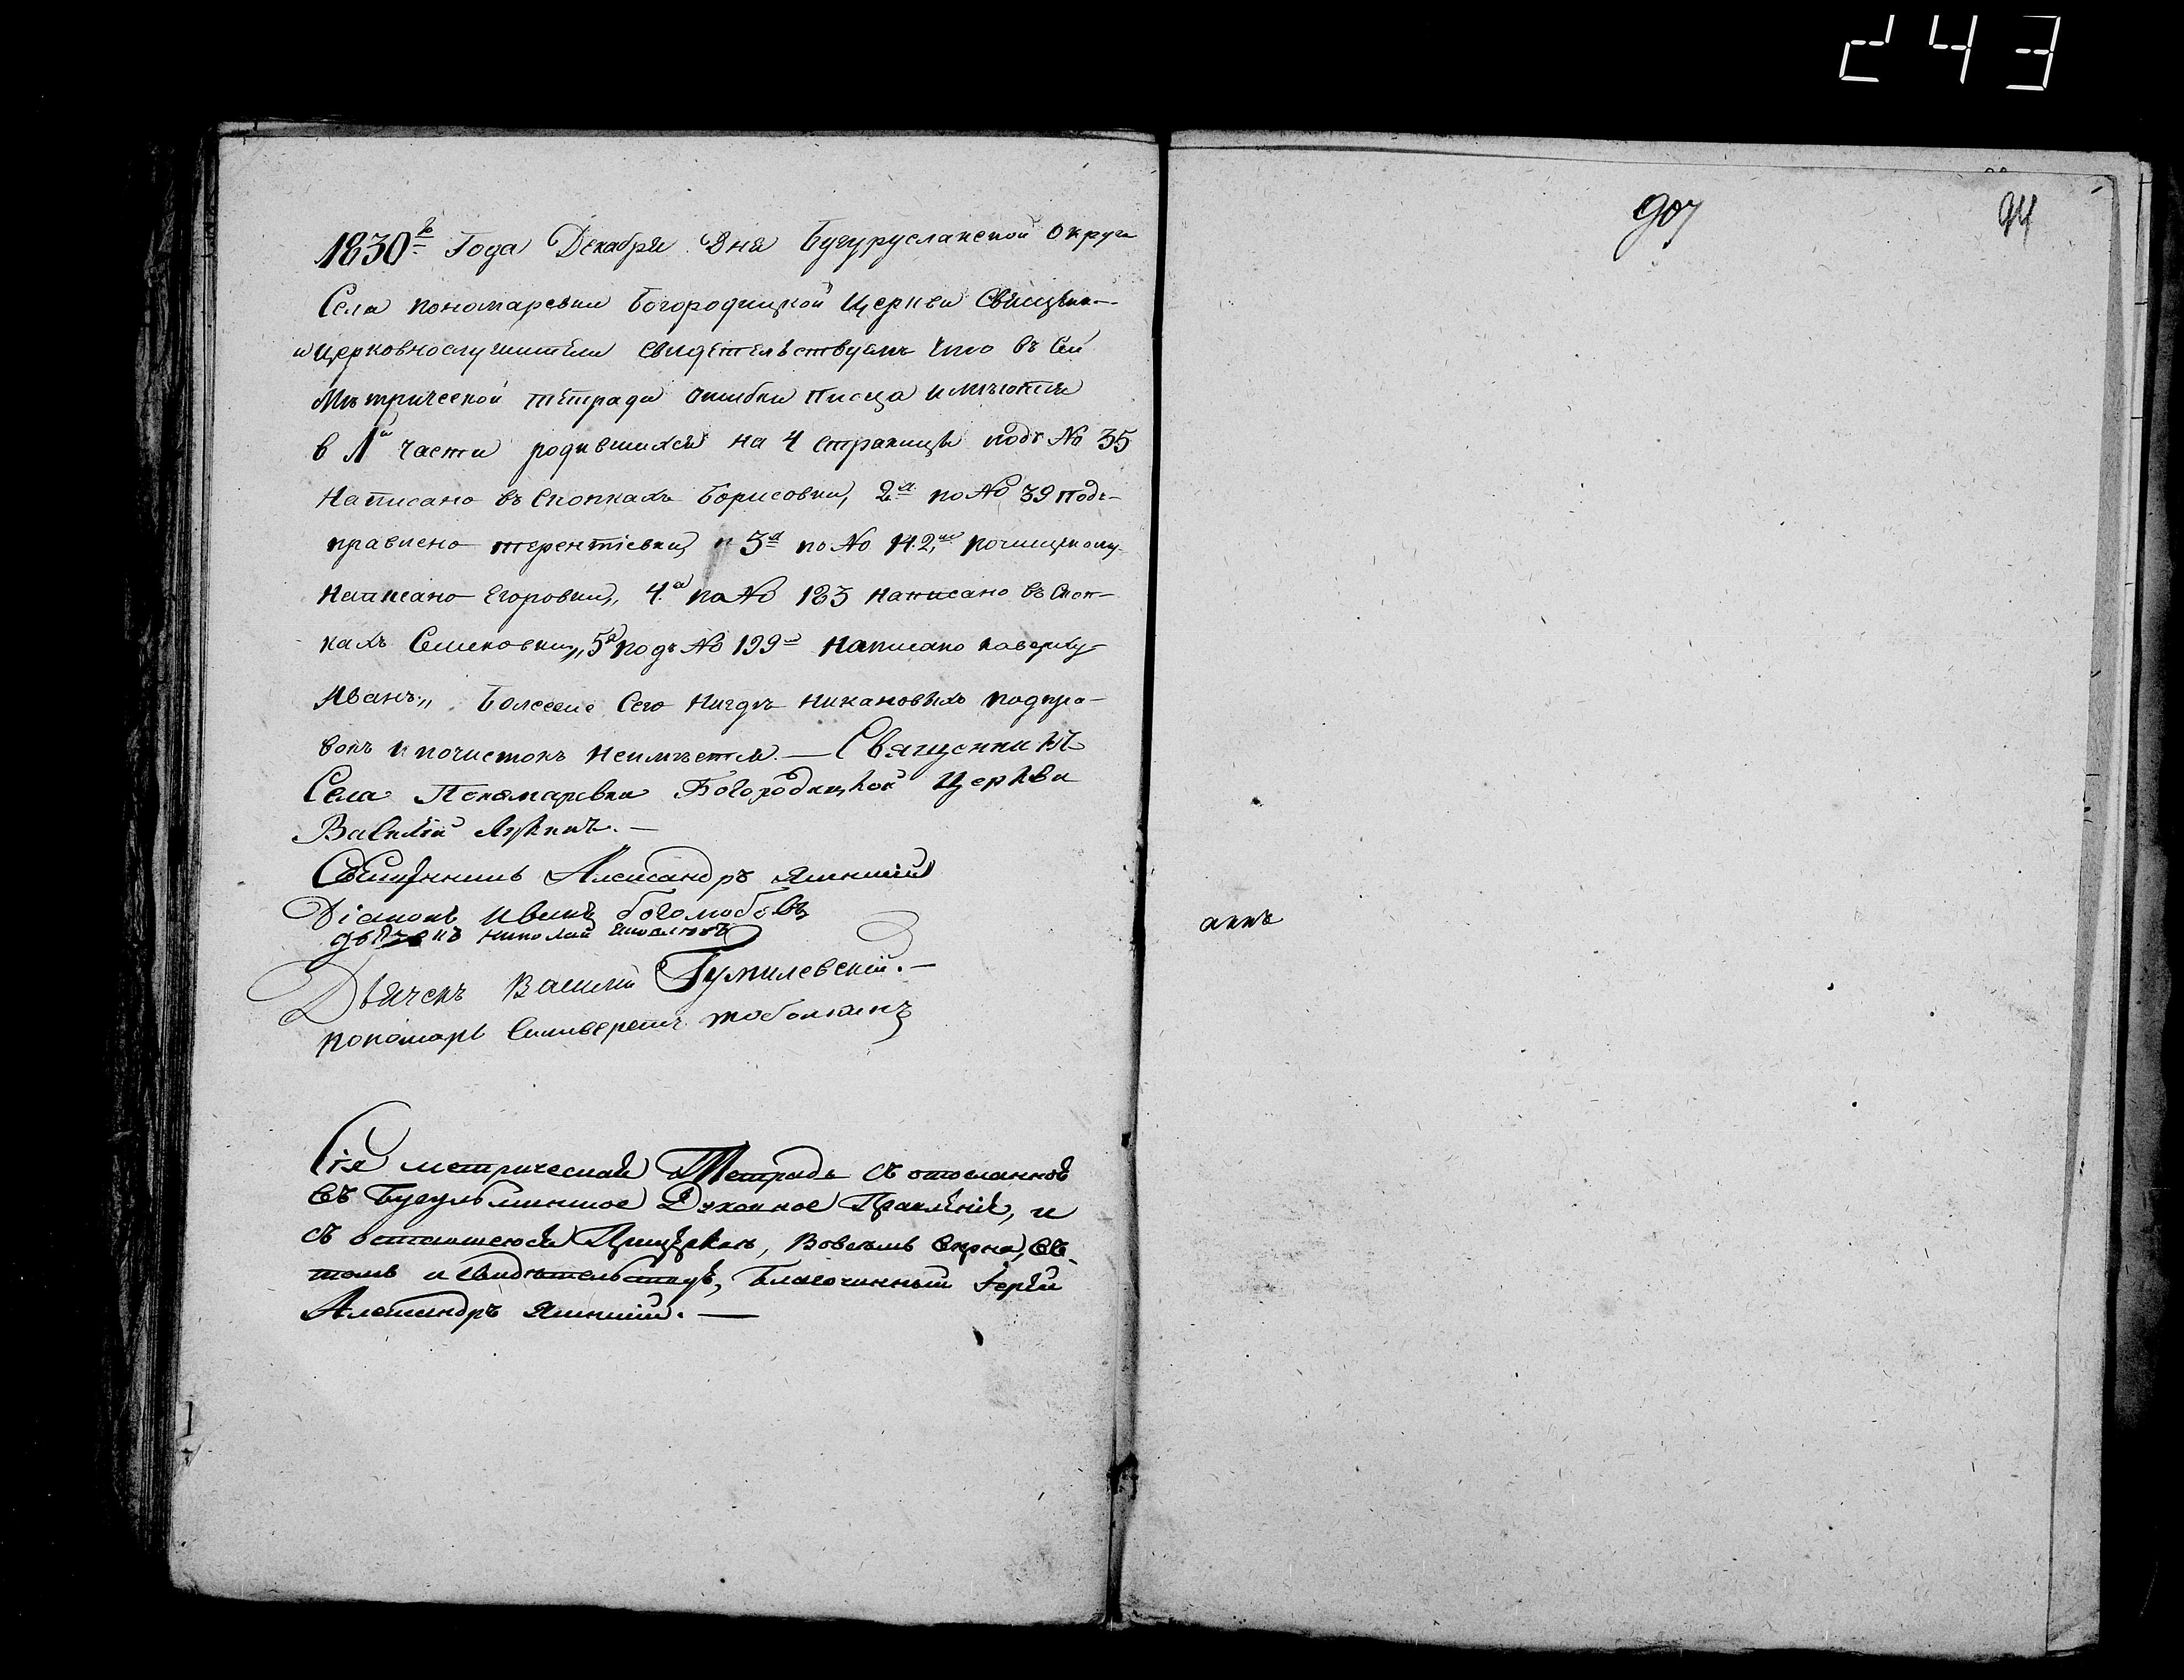 243
1830го Года Декабря Дня Бугурусланской Округи
Села пономаревки Богородицкой Церкви Священно
и Церковнослужители свидетельствуемъ что въ сей
Метрической тетради ошибки писца имѣются
в 1й части родившихся на 4 странице подъ № 35
написано въ скопкахъ Борисовки, 2я по № 39 под-
правлено терентiевки, 3я по № почищеному
написано Егоровки,, 4я по № 183 написано въ скоп-
кахъ Семеновки,, 5я подъ № 199м написано наверху
Иванъ,, Более сего нигдѣ никаковыхъ подпра-
вокъ и почистокъ неимѣется. — Священникъ
Села Пономаревки Богородицкой Церкви
Василiй Лукинъ. —
Священникъ Александръ Ясинскiй
Дiаконъ Иванъ боголюбовъ
дьячекъ николай
Дьячекъ Василiй Гумилевскiй. —
пономарь Сильверстъ тоболкинъ
Сiя метрическая Тетрадь съ отосланной
въ Бугульминское Духовное Правленiе, и
съ оставшеюся Прицеркве, вовсемъ верна, въ
томъ и свидѣтельствую, Благочинный Iерей
Александръ Ясинскiй. —
907
94
аннъ